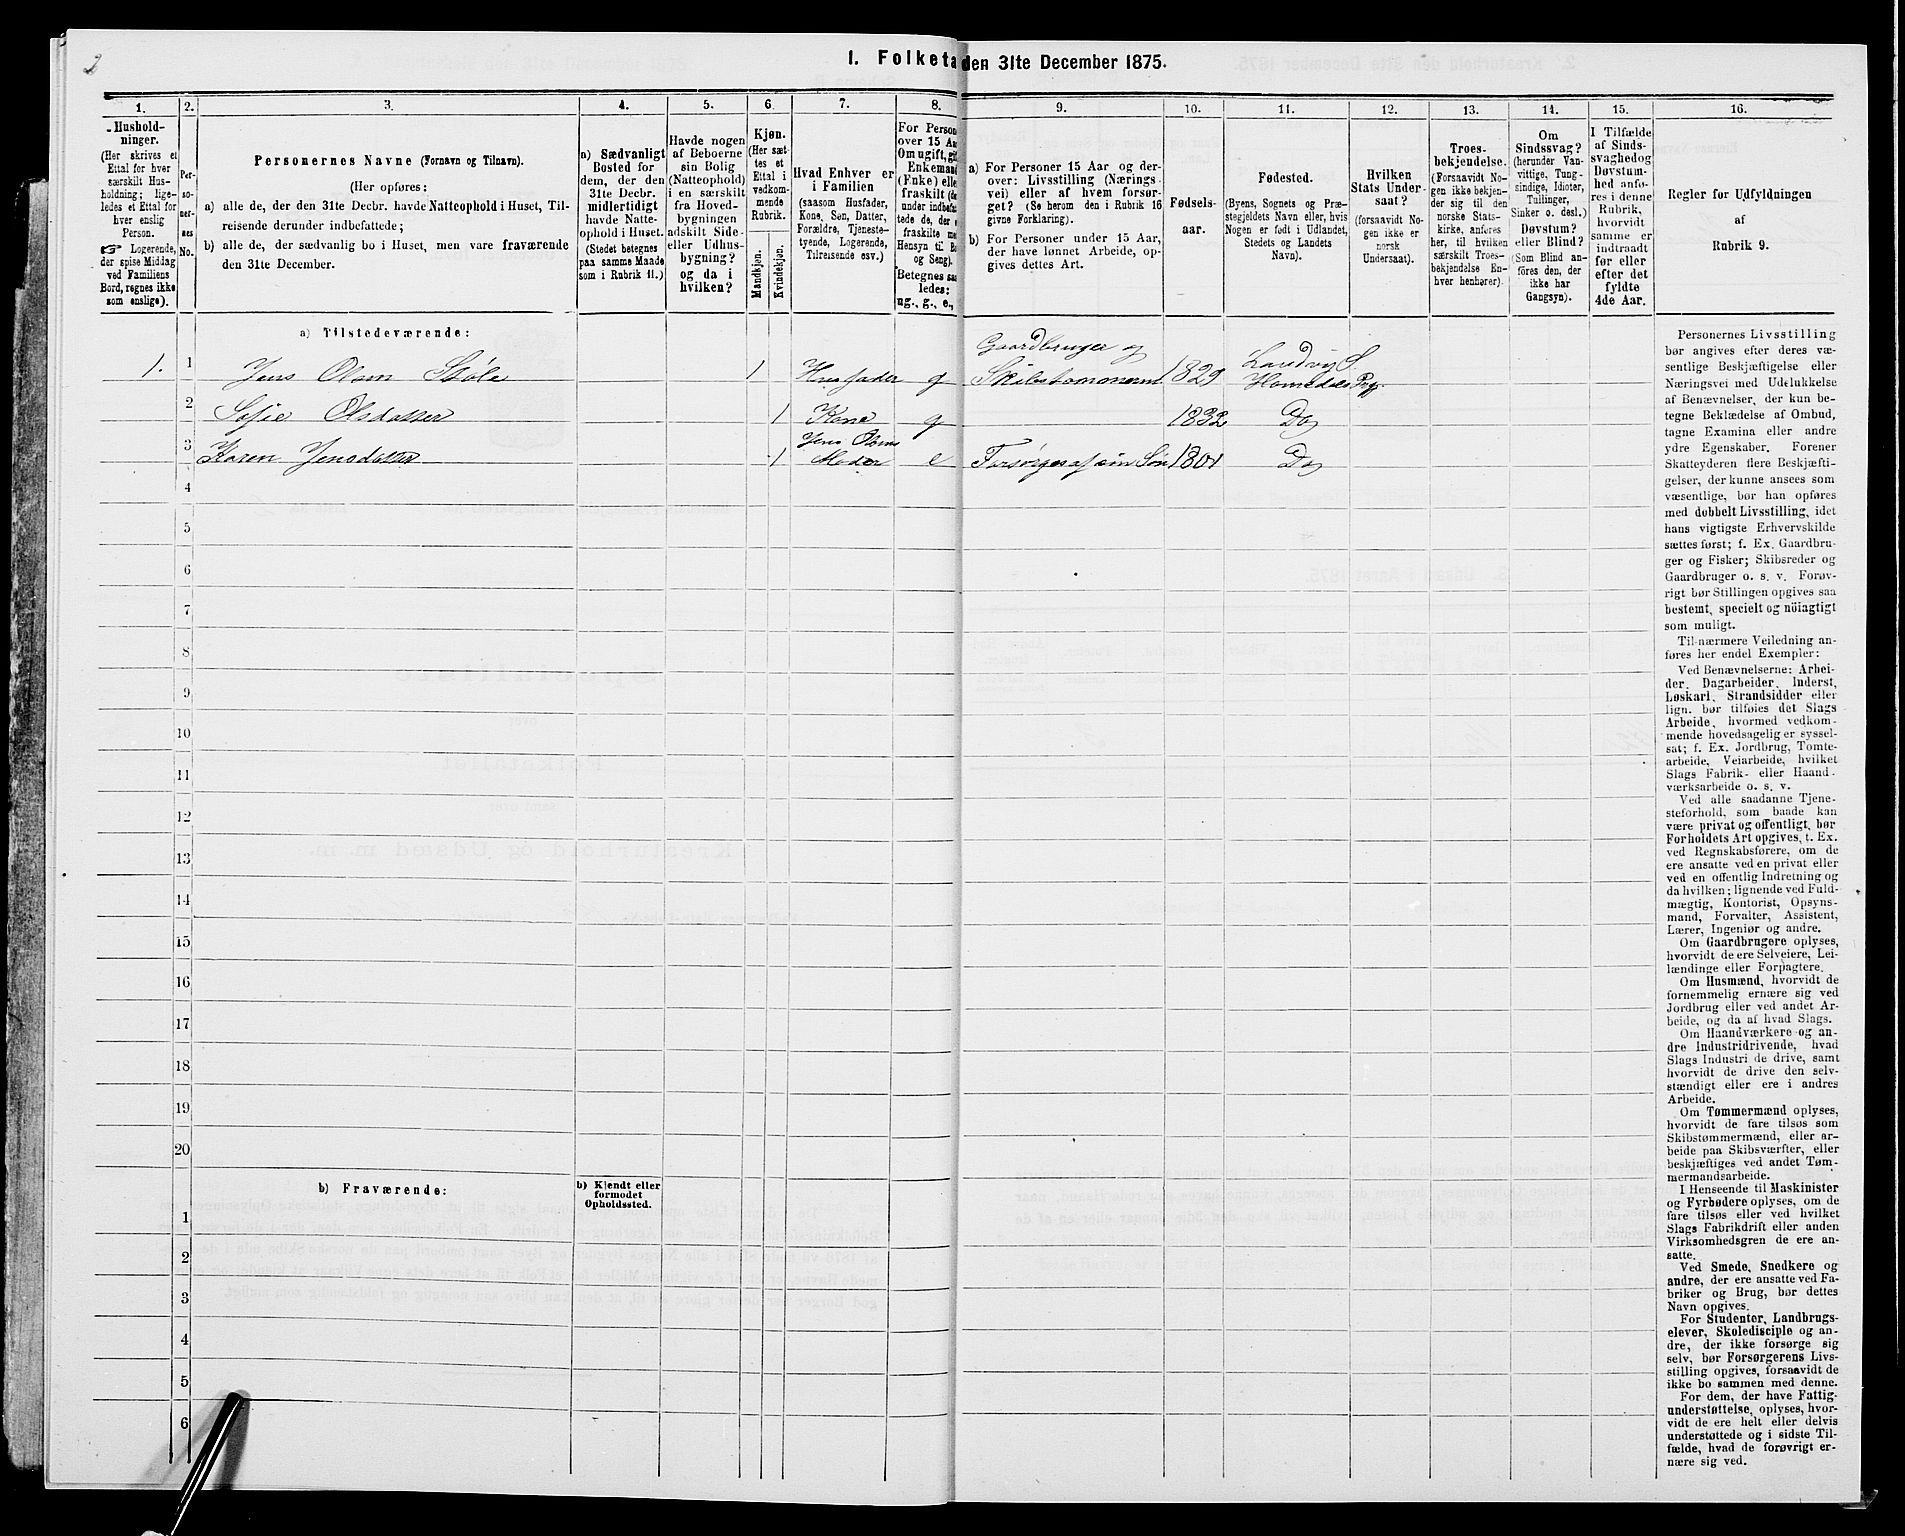 2
I. Folketa den 31te December 1875.
1.
2.
3.
4.
5.
6.
7.
8.
9.
10.
11.
12.
13.
14.
15.
16.
Hushold-
ninger.
(Her skrives et
Ettal for hver
særskilt Hus-
holdning; lige-
ledes et Ettal for
hver enslig
Person.
☞ Logerende,
der spise Middag
ved Familiens
Bord, regnes ikke
som enslige).
Per-
so-
ner-
nes
No.
Personernes Navne (Fornavn og Tilnavn).
(Her opføres:
a) alle de, der den 31te Decbr. havde Natteophold i Huset, Til-
reisende derunder indbefattede;
b) alle de, der sædvanlig bo i Huset, men vare fraværende
den 31te December.
a) Sædvanligt
Bosted for
dem, der den
31te Decbr.
midlertidigt
havde Natte-
ophold i Huset.
(Stedet betegnes
paa samme Maade
som i Rubrik 11.)
Havde nogen
af Beboerne
sin Bolig
(Natteophold)
i en særskilt
fra Hoved-
bygningen
adskilt Side-
eller Udhus-
bygning?
og da i
hvilken?
Kjøn.
(Her sæt-
tes et
Ettal i
vedkom-
mende
Rubrik.
Mandkjøn.
Kvindekjøn.
Hvad Enhver er
i Familien
(saasom Husfader,
Kone, Søn, Datter,
Forældre, Tjeneste-
tyende, Logerende,
Tilreisende osv.)
For Person
over 15 Aa
Om ugift, gif
Enkemand
(Enke) elle
fraskilt (de
under indbefat
tede de, der e
fraskilte me
Hensyn til Bo
og Seng).
Betegnes saa
ledes:
ug., g., e.,
a) For Personer 15 Aar og der-
over: Livsstilling (Nærings-
vei) eller af hvem forsør-
get? (Se herom den i Rubrik 16
givne Forklaring).
b) For Personer under 15 Aar,
der have lønnet Arbeide, op-
gives dettes Art.
Fødsels-
aar.
Fødested.
(Byens, Sognets og Præ-
stegjeldets Navn eller, hvis
Nogen er født i Udlandet,
Stedets og Landets
Navn).
Hvilken
Stats Under-
saat?
(forsaavidt No-
gen ikke er
norsk
Undersaat).
Troes-
bekjendelse.
(Forsaavidt No-
gen ikke bekjen-
der sig til den
norske Stats-
kirke, anføres
her, til hvilken
særskilt Troes-
bekjendelse En-
hver henhører).
Om
Sindssvag?
(herunder Van-
vittige, Tung-
sindige, Idioter,
Tullinger,
Sinker o. desl.)
Døvstum?
eller Blind?
(Som Blind an-
føres den, der
ikke har
Gangsyn).
I Tilfælde
af Sinds-
svaghed og
Døvstum-
hed anfø-
res i denne
Rubrik,
hvorvidt
samme er
indtraadt
før eller
efter det
fyldte
4de Aar.
Regler for Udfyldningen
af
Rubrik 9.
a) Tilstedeværende:
1. 1 Jens Olsen Støle 1 Husfader g Gaardbruger og
Skibstømmerm 1829 Landvig S.
Homedals Prgj
2 Sofie Olsdatter 1 Kone g 1832 Do
3 Karen Jensdatter 1 Jens Olsens
Moder e Forsørges af sin Søn 1801 Do
4
5
6
7
8
9
10
11
12
13
14
15
16
17
18
19
20
b) Fraværende:
b) Kjendt eller
formodet
Opholdssted.
1
2
3
4
5
6
Personernes Livsstilling
bør angives efter deres væ-
sentlige Beskjæftigelse eller
Næringsvei med Udelukkelse
af Benævnelser, der kun be-
tegne Beklædelse af Ombud,
tagne Examina eller andre
ydre Egenskaber. Forener
Skatteyderen flere Beskjæfti-
gelser, der kunne ansees som
væsentlige, bør han opføres
med dobbelt Livsstilling, idet
hans vigtigste Erhvervskilde
sættes først; f. Ex. Gaardbru-
ger og Fisker; Skibsreder og
Gaardbruger o. s. v. Forøv-
rigt bør Stillingen opgives saa
bestemt, specielt og nøiagtigt
som muligt.
Til nærmere Veiledning an-
føres her endel Exempler:
Ved Benævnelserne: Arbei-
der, Dagarbeider, Inderst,
Løskarl, Strandsidder eller
lign. bør tilføies det Slags
Arbeide, hvormed vedkom-
mende hovedsagelig er syssel-
sat; f. Ex. Jordbrug, Tomte-
arbeide, Veiarbeide, hvilket
Slags Fabrik- eller Haand-
værksarbeide o. s. v.
Ved alle saadanne Tjene-
steforhold, som baade kan
være privat og offentligt, bør
Forholdets Art opgives, t. Ex.
ved Regnskabsførere, om de
ere ansatte ved en privat eller
ved en offentlig Indretning og
da hvilken; lignende ved Fuld-
mægtig, Kontorist, Opsyns-
mand, Forvalter, Assistent,
Lærer, Ingeniør og andre.
Om Gaardbrugere oplyses,
hvorvidt de ere Selveiere, Lei-
lændinge eller Forpagtere.
Om Husmænd, hvorvidt de
fornemmelig ernære sig ved
Jordbrug eller ved andet Ar-
beide, og da af hvad Slags.
Om Haandværkere og an-
dre Industridrivende, hvad
Slags Industri de drive, samt
hvorvidt de drive den selv-
stændigt eller ere i andres
Arbeide.
Om Tømmermænd oplyses,
hvorvidt de fare tilsøs som
Skibstømmermænd, eller ar-
beide paa Skibsværfter, eller
beskjæftiges ved andet Tøm-
mermandsarbeide.
I Henseende til Maskinister
og Fyrbødere oplyses, om de
fare tilsøs eller ved hvilket
Slags Fabrikdrift eller anden
Virksomhedsgren de ere an-
satte.
Ved Smede, Snedkere og
andre, der ere ansatte ved Fa-
briker og Brug, bør dettes
Navn opgives.
For Studenter, Landbrugs-
elever, Skoledisciple og an-
dre, der ikke forsørge sig
selv, bør Forsørgerens Livs-
stilling opgives, forsaavidt de
ikke bo sammen med denne.
For dem, der have Fattig-
understøttelse, oplyses, hvor-
vidt de ere helt eller delvis
understøttede og i sidste Til-
fælde, hvad de forøvrigt er-
nære sig ved.